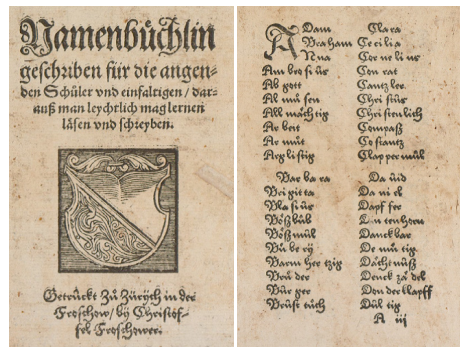 Namenbüchlin
geschriben für die angen-
den Schüler vnd einfaltigen / dar-
auß man leychtlich mag lernen
läsen vnd schreyben.
Getruckt Zů Zürych in der
Froschow / by Christof-
fel Froschower.
Adam
Abraham
Anna
Am bro si us
Ab gott
Al mů sen
All mächtig
Ar beit
Ar můt
Arg listig
Bar ba ra
Bri git ta
Bla si us
Bößbůb
Bößmul
Bů be ry
Barm her tzig
Brů der
Bur ger
Brust tůch
Clara
Cecilia
Cor ne li us
Con rat
Cantz ler
Chri stus
Chri sten lich
Compaß
Co stantz
Clapper mul
Da uid
Da ni el
Dapf fer
Din tenhorn
Danckbar
De mů tig
Denck zä del
Don der klapff
A iij